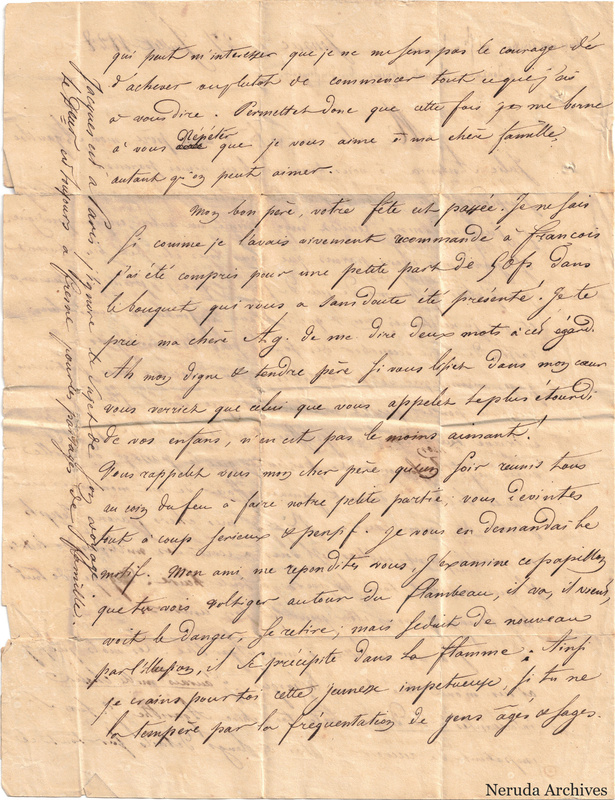 qui peut m'interesser que je ne me sens pas le courage de
d'achever ou plutot de commencer tout ce que j'ai
à vous dire. Permettez donc que cette fois je me borne
à vous repéter que je vous aime et ma chère famille,
autant qu'on peut aimer.
Mon bon père, votre fête est passée. Je ne sais
si comme je l'avais vivement recommandé à françois
j'ai été compris pour une petite part de dans
le bouquet qui vous a sans doute été présenté. Je te
prie ma chère A.g. de me dire deux mots à cet égard.
Ah mon digne & tendre père si vous lisiez dans mon cœur
vous verriez que celui que vous appelez le plus étourdi
de vos enfans, n'en est pas le moins aimant!
Vous rappelez vous mon cher père qu'un soir reunis tous
au coin du feu à faire notre petite partie; vous devintes
tout à coup serieux & pensif. Je vous en demandai le
motif. Mon ami me repondites vous, J'examine ce papillon
que tu vois voltiger autour du flambeau, il va, il vient,
voit le danger, se retire; mais seduit de nouveau
par l'illusion, il se précipite dans la flamme. Ainsi
je crains pour toi cette jeunesse impetueuse, si tu ne
la tempère par la fréquentation de gens âgés & sages.
Jacques est à Paris, j'ignore le sujet de son voyage
le est toujours à pour les partages de famille.
Neruda Archives